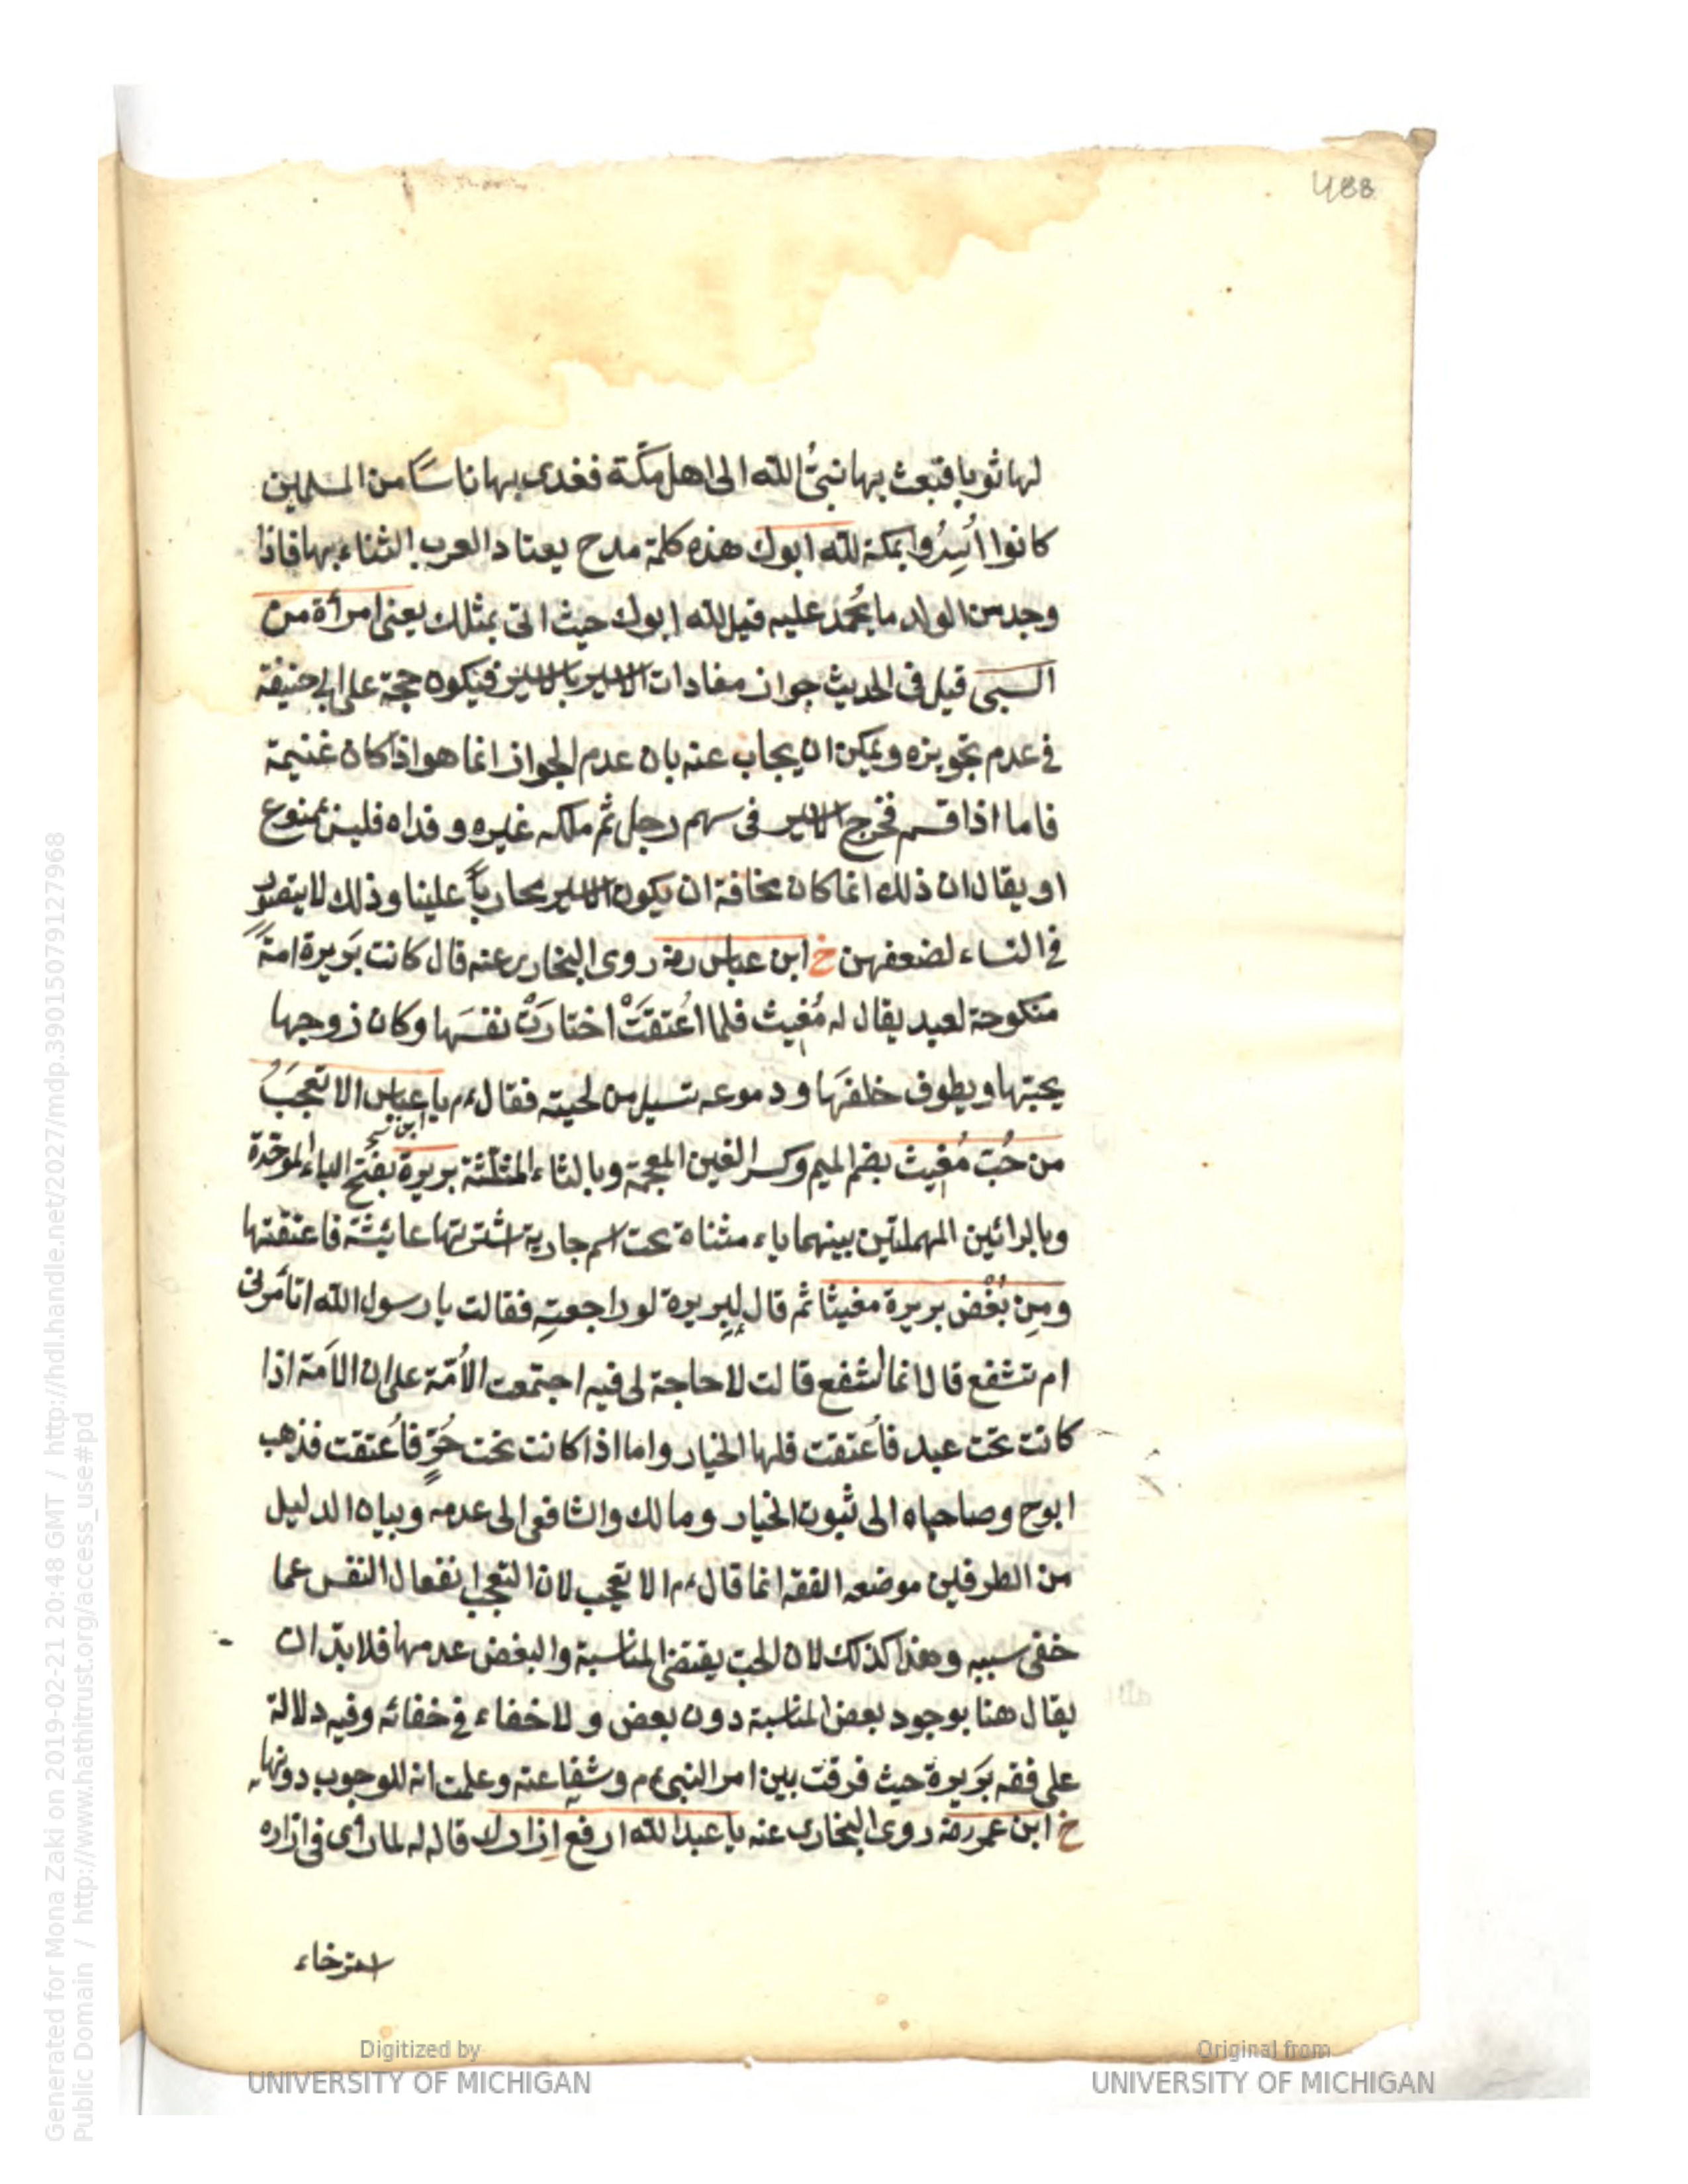 488
لها ثوبا فبعث بها نبىُّ الله الى اهل مكّة ففدى بها ناسًا من المسلمين
كانوا اُسِرُوا بمكة لله ابوك هذه كلمة مدح يعتاد العرب الثناء بها فاذا
وجد من الولد ما يُحمد عليه قيل لله ابوك حيث اتى بمثلك يعنى امرأة من
السبى قيل فى الحديث جواز مفادات الاسير بالاسير فيكون حجة على ابى حنيفة
فى عدم تجويزه ويمكن ان يجاب عنه بان عدم الجواز انما هو اذا كان غنيمة
فاما اذا قسم فخرج الاسير فى سهم رجل ثم ملكه غيره وفداه فليس بممنوع
او يقال ان ذلك انما كان مخافة ان يكون الاسير محارباً علينا وذلك لا يتصور
فى النساء لضعفهن خ ابن عباس رضه روى البخارى عنه قال كانت بَريرة امةً
منكوحة لعبد يقال له مُغيث فلما اُعتقَتْ اختارَتْ نفسَها وكان زوجها
يحبّها ويطوف خلفَها ودموعه تسيل من لحيته فقال ءم يا عباس الا تعجَبُ
ابن نسخ
من حُبّ مُغيث بضم الميم وكسر الغين المعجمة وبالثاء المثلثة بريرة بفتح الباء الموحّدة
وبالرائين المهملتين بينهما ياء مثناة تحت اسم جارية اشترتها عائشة فاعتقتها
ومِن بُغْض بريرة مغيثا ثم قال لِبريرة لو راجعتِهِ فقالت يا رسول الله اتأمرنى
ام تشفع قال انما اشفع قالت لا حاجة لى فيه اجتمعت الاُمّة على ان الاَمة اذا
كانت تحت عبد فاُعتقت فلها الخيار واما اذا كانت تحت حُرٍّ فاُعتقت فذهب
ابوح وصاحباه الى ثبوت الخيار ومالك والشافعى الى عدمه وبيان الدليل
من الطرفين موضعه الفقه انما قال ءم الا تعجب لان التعجب انفعال النفس عما
خفى سببه وهذا كذلك لان الحبّ يقتضى المناسبة والبغض عدمها فلا بدّ ان
يقال هنا بوجود بعض المناسبة دون بعض ولا خفاء فى خفائه وفيه دلالة
على فقه بَريرة حيث فرقت بين امر النبى ءم وشفاعته وعلمت انه للوجوب دونها
خ ابن عمر رضه روى البخارى عنه يا عبد الله ارفع اِزارك قاله له لما رأى فى ازاره
استرخاء
Digitized by
UNIVERSITY OF MICHIGAN
Original from
UNIVERSITY OF MICHIGAN
Generated for Mona Zaki on 2019-02-21 20:48 GMT / http://hdl.handle.net/2027/mdp.39015079127968
Public Domain / http://www.hathitrust.org/access_use#pd